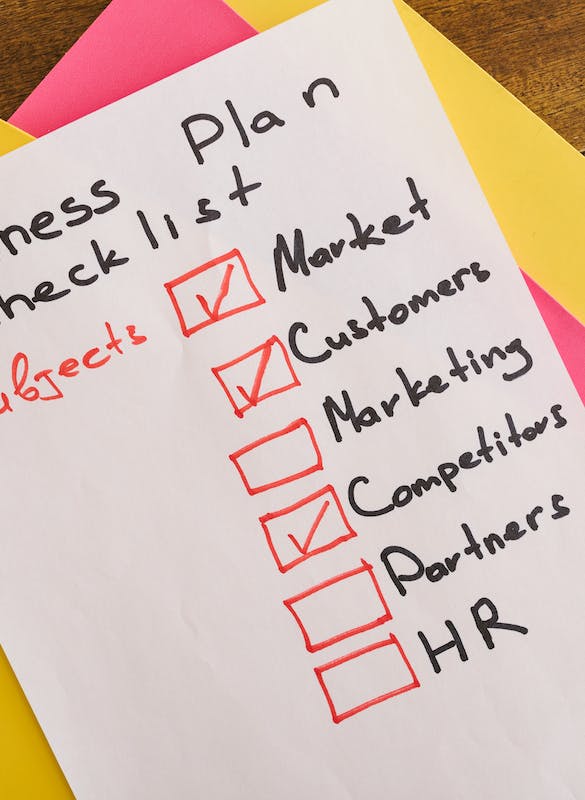 ness Plan
heck list
ubjects
Market
Customers
Marketing
Competitors
Partners
HR